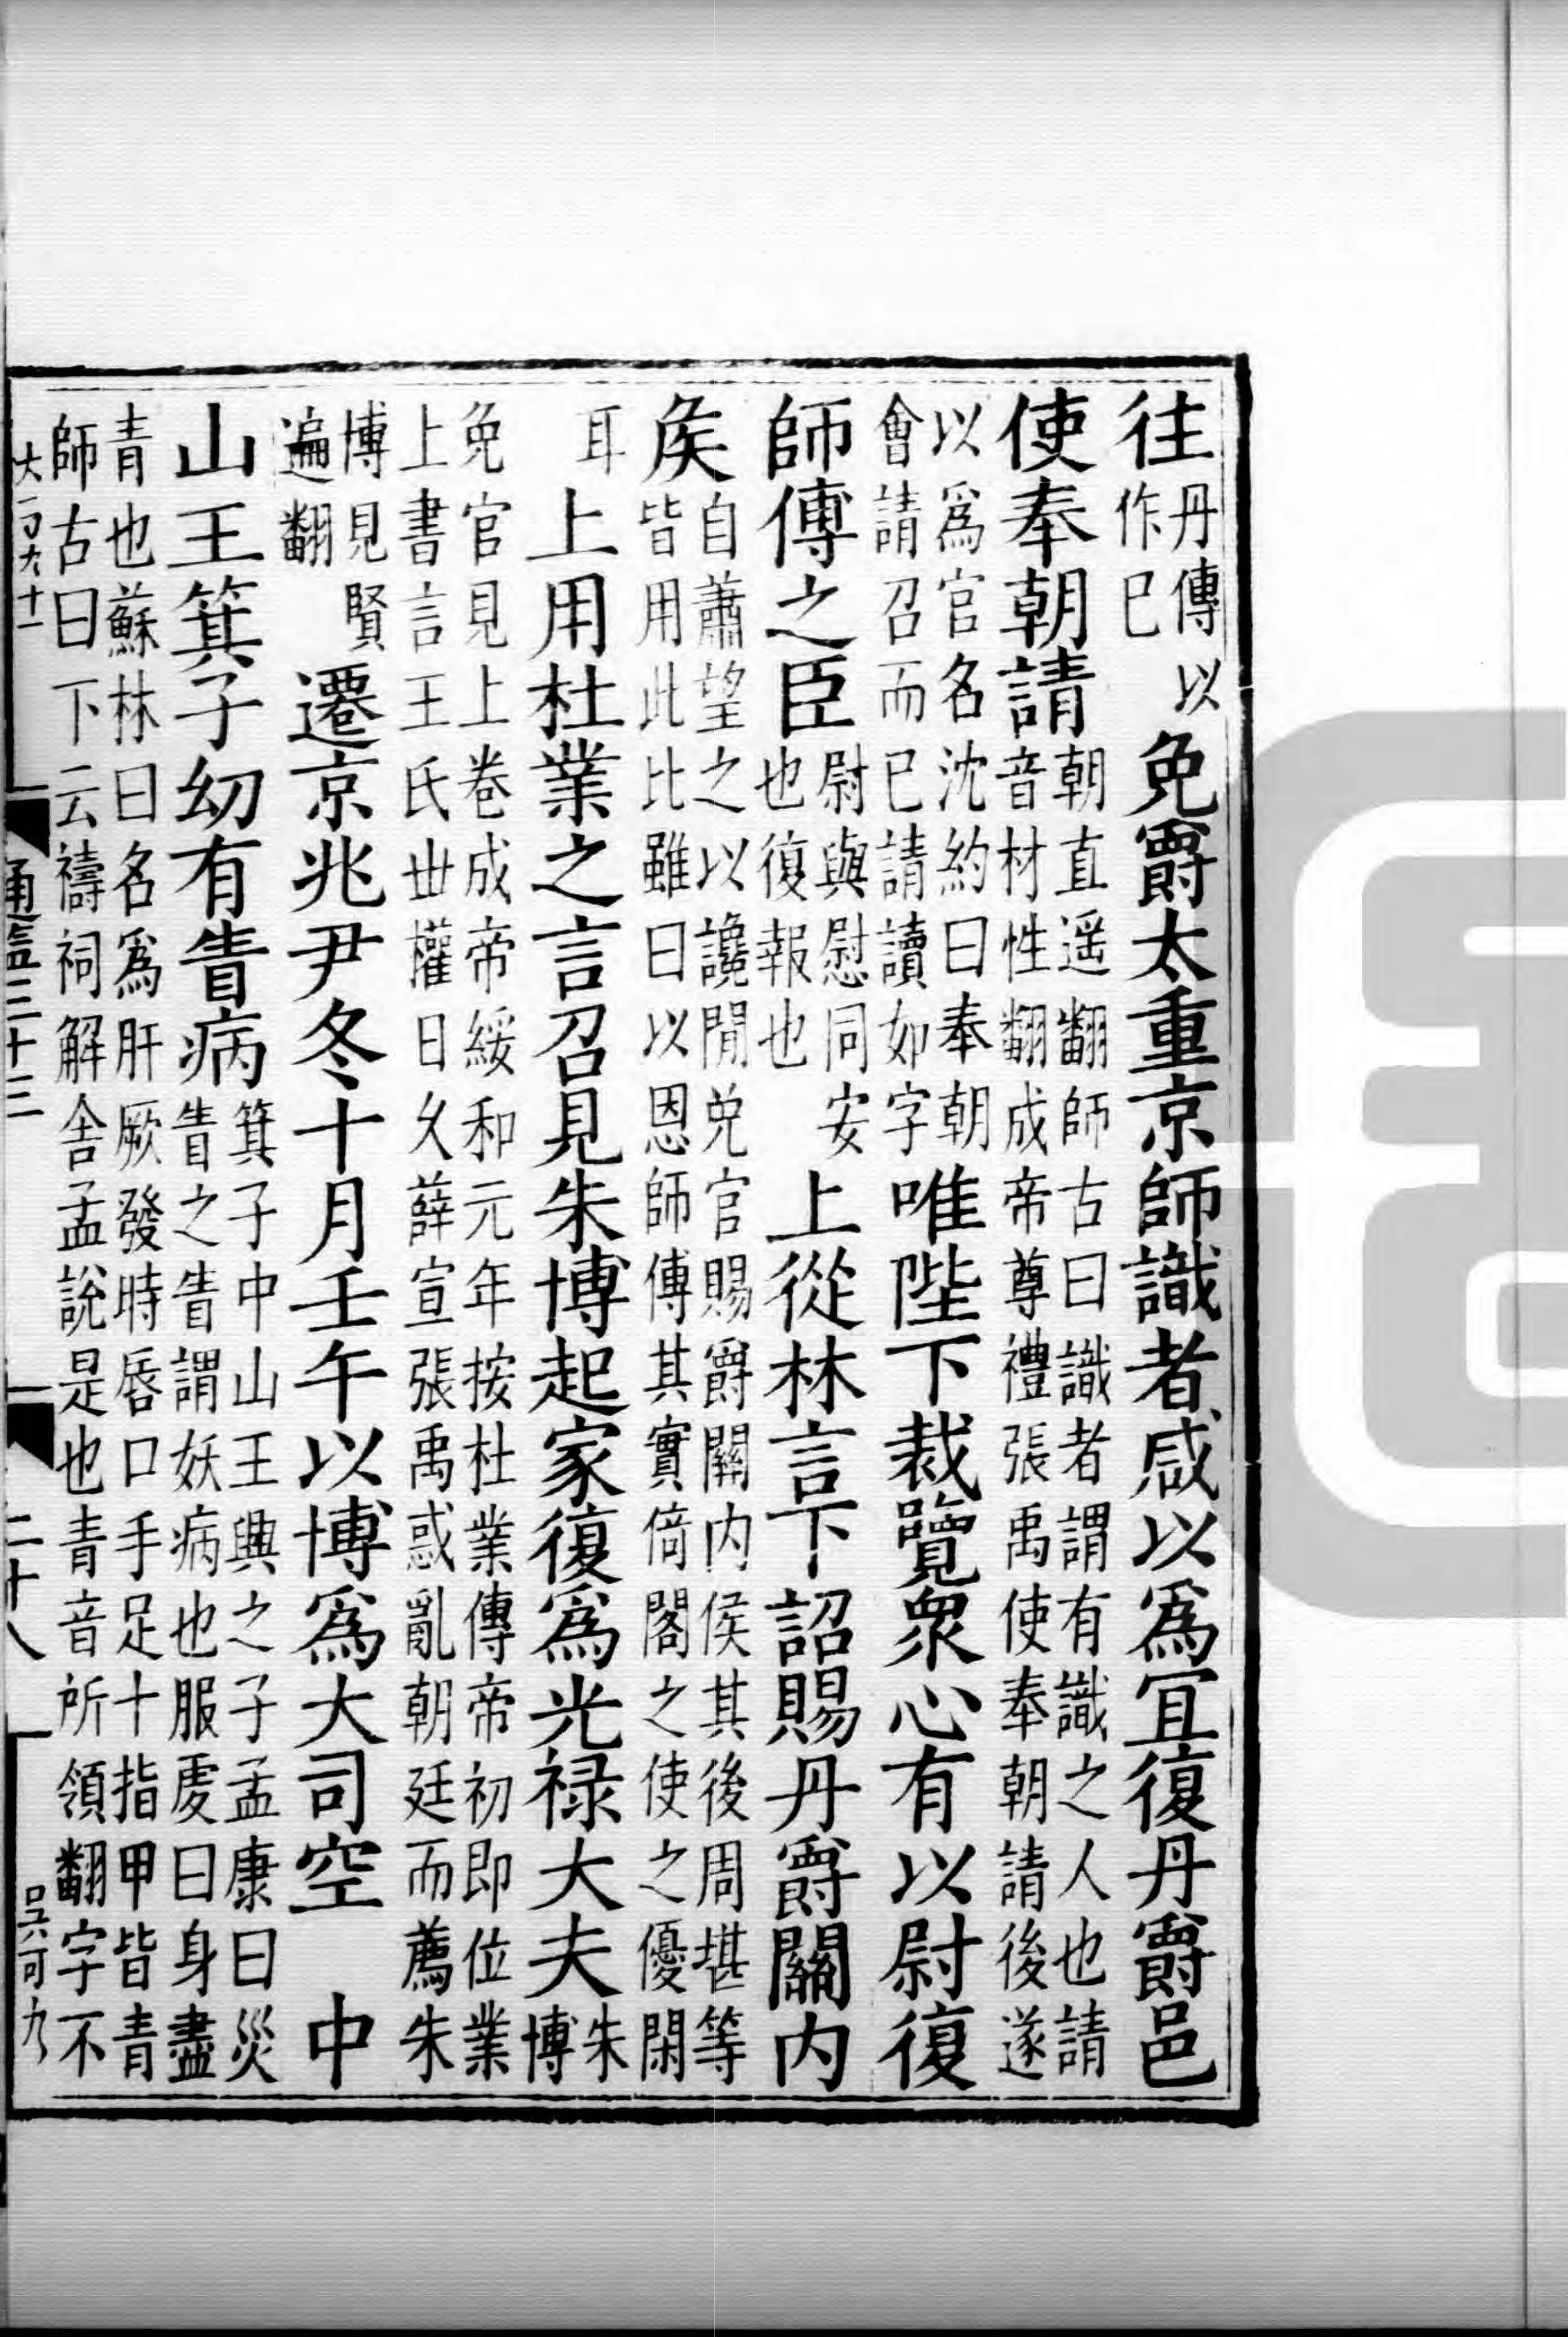 往丹傳以作已免爵太重京師識者咸以爲宜復丹爵邑
使奉朝請朝直遥翻師古曰識者謂有識之人也請音材性翻成帝尊禮張禹使奉朝請後遂
以爲官名沈約曰奉朝會請召而已請讀如字唯陛下裁覽衆心有以尉復
師傅之臣尉與慰同安也復報也上從林言下詔賜丹爵關内
矦自蕭望之以讒閒免官賜爵關内侯其後周堪等皆用此比雖曰以恩師傅其實倚閣之使之優閑
耳上用杜業之言召見朱博起家復爲光禄大夫朱博
免官見上卷成帝綏和元年按杜業傳帝初即位業上書言王氏丗權日久薛宣張禹惑亂朝廷而薦朱
博見賢遍翻遷京兆尹冬十月壬午以博爲大司空 中
山王箕子幼有眚病箕子中山王興之子孟康曰災眚之眚謂妖病也服虔曰身盡
青也蘇林曰名爲肝厥發時唇口手足十指甲皆青師古曰下云禱祠解舍孟說是也青音所領翻字不
通鑑三十三 二十八